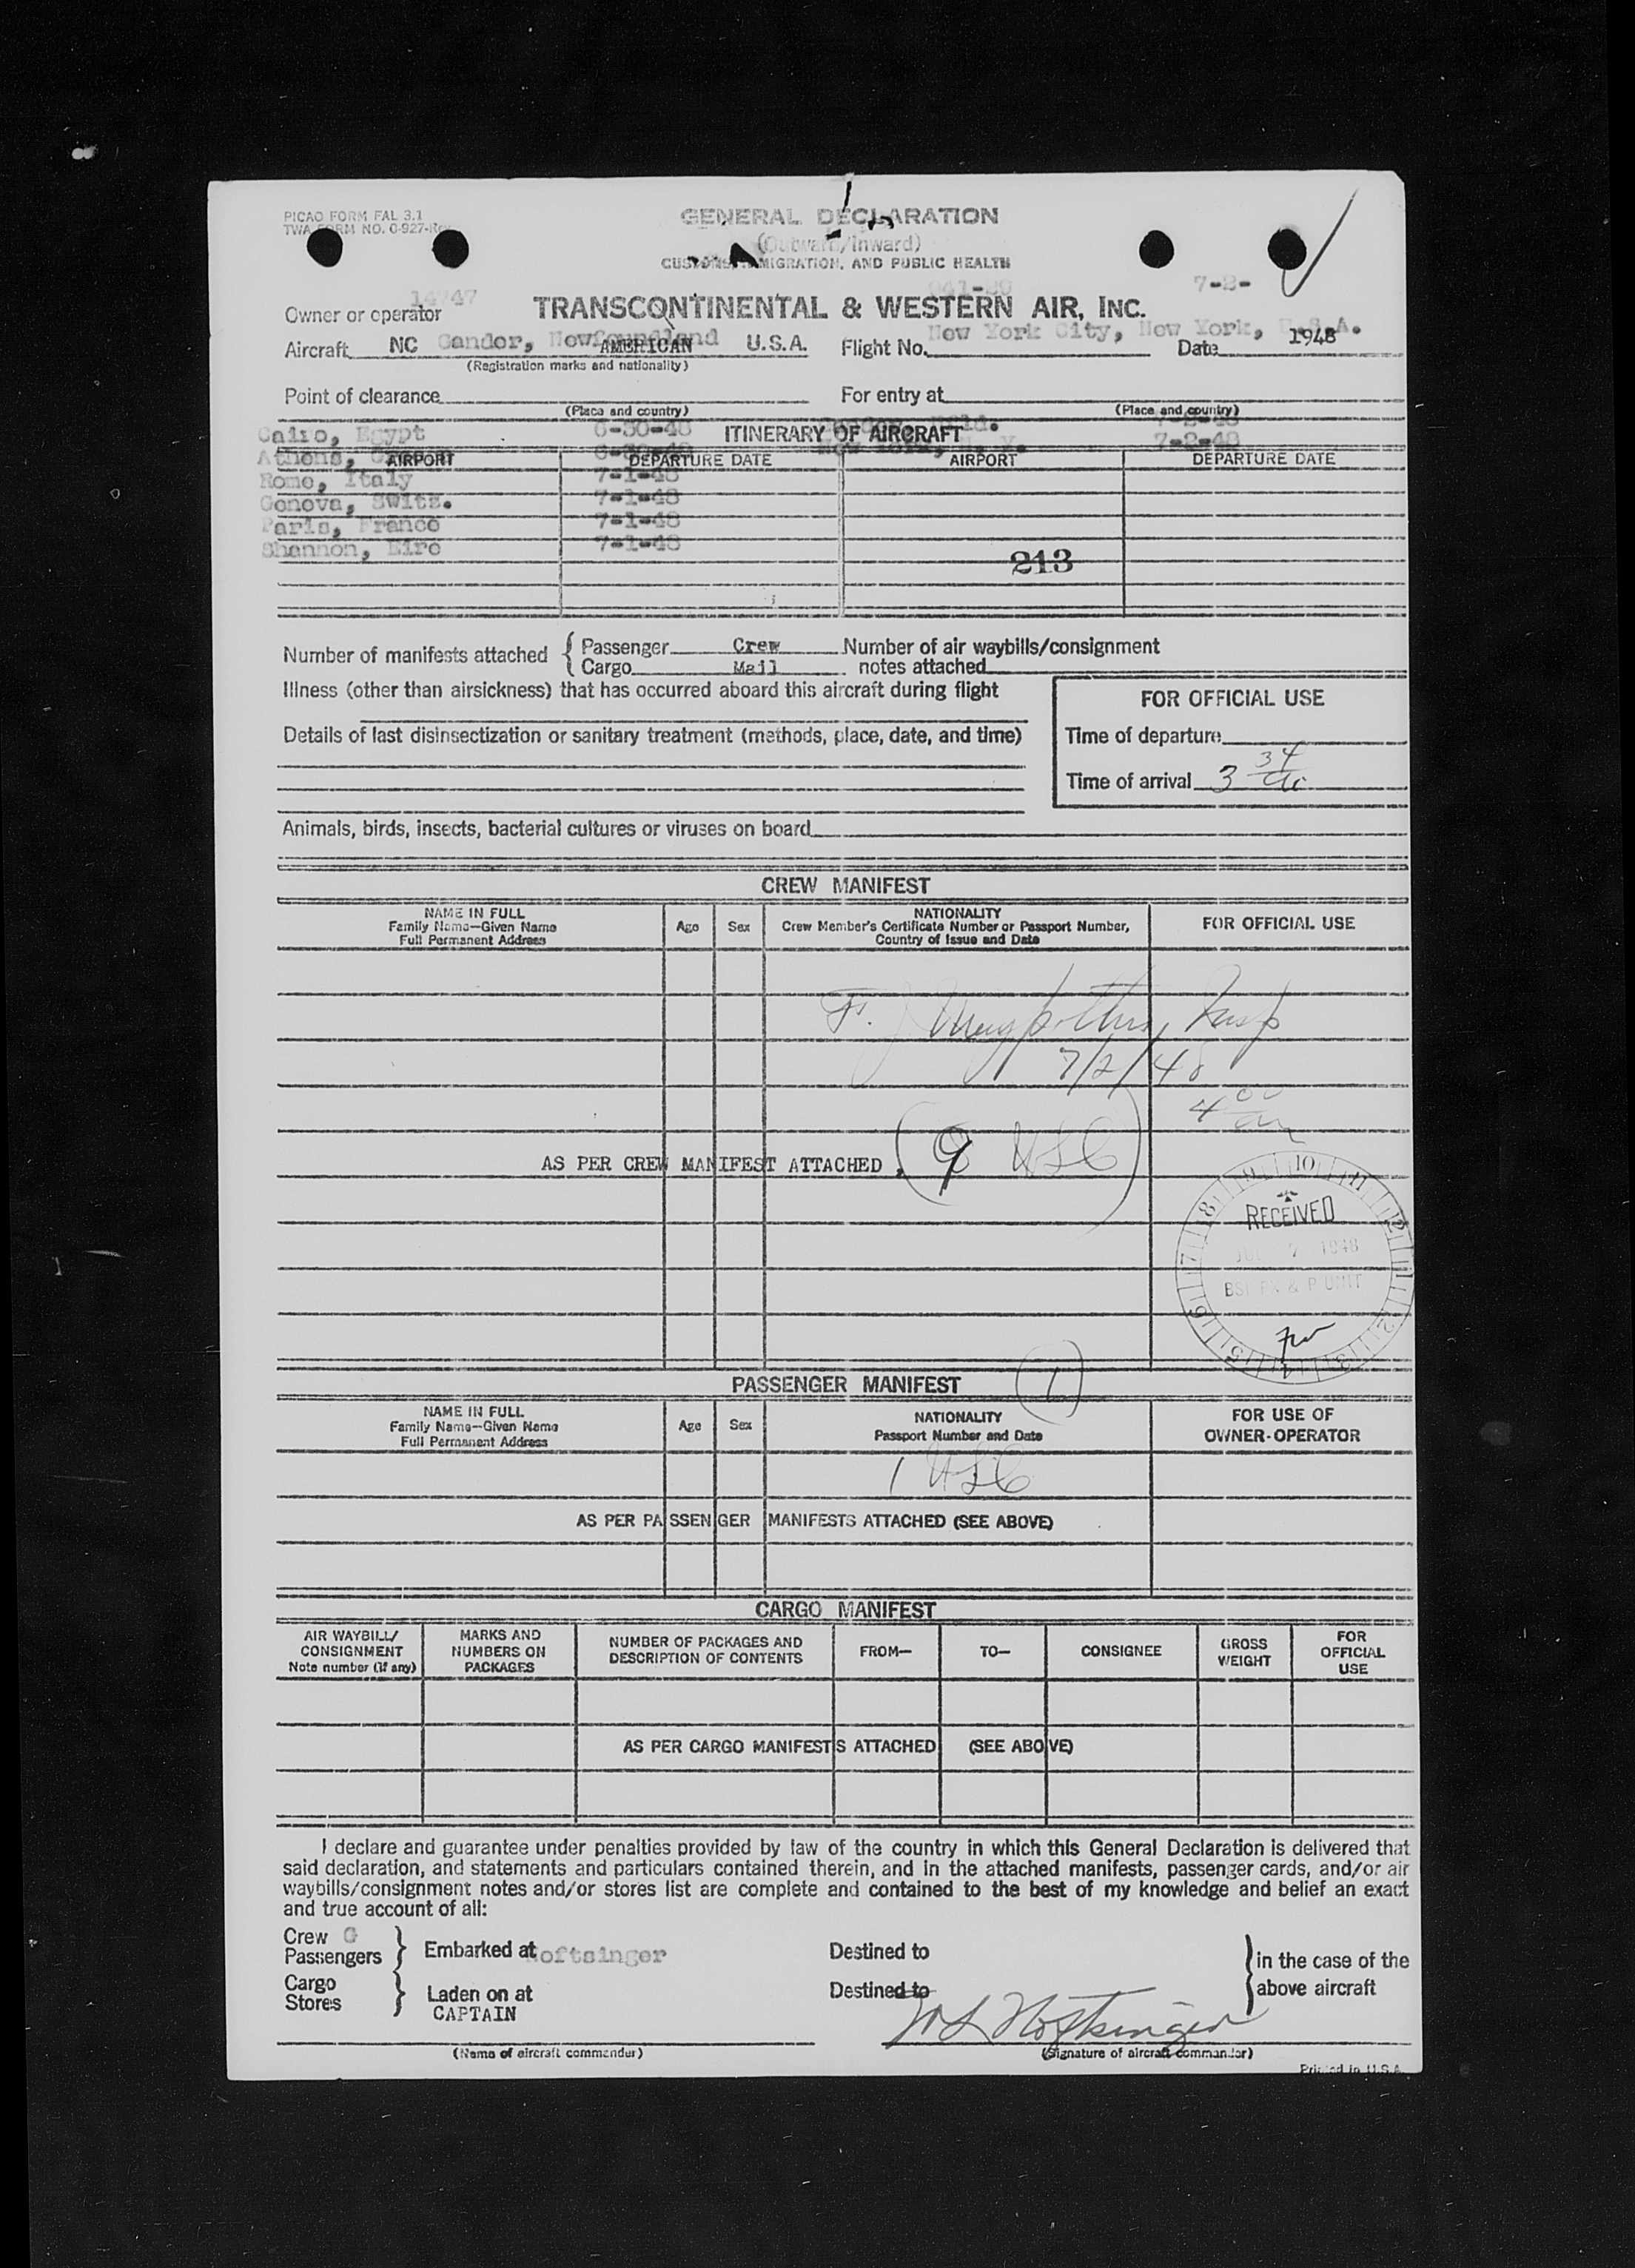 PICAO FORM FAL 3.1
TWA FORM NO. 0-927-Rev
GENERAL DECLARATION
(Outward/Inward)
CUSTOMS, IMMIGRATION, AND PUBLIC HEALTH
14747 7-2-
Owner or operator TRANSCONTINENTAL & WESTERN AIR, INC.
Gander, Newfoundland New York City, New York, U.S.A.
Aircraft NC AMERICAN U.S.A. Flight No. Date 1948
(Registration marks and nationality)
Point of clearance For entry at
(Place and country) (Place and country)
Cairo, Egypt 6-30-48 7-2-48
ITINERARY OF AIRCRAFT
Athens, 6-30-48 New York, N. Y. 7-2-48
AIRPORT DEPARTURE DATE AIRPORT DEPARTURE DATE
Rome, Italy 7-1-48
Geneva, Switz. 7-1-48
Paris, France 7-1-48
Shannon, Eire 7-1-48
213
Number of manifests attached { Passenger Crew Number of air waybills/consignment
Cargo Mail notes attached
Illness (other than airsickness) that has occurred aboard this aircraft during flight
FOR OFFICIAL USE
Details of last disinsectization or sanitary treatment (methods, place, date, and time)
Time of departure
Time of arrival 3 34
Animals, birds, insects, bacterial cultures or viruses on board
CREW MANIFEST
NAME IN FULL
Family Name—Given Name
Full Permanent Address
Age
Sex
NATIONALITY
Crew Member's Certificate Number or Passport Number,
Country of Issue and Date
FOR OFFICIAL USE
F. J.
7/2/48
4 00 am
AS PER CREW MANIFEST ATTACHED , (9 USC)
9 10 11 12 1 2 3 4 5 6 7 8
RECEIVED
JUL 7 1948
UNIT
PASSENGER MANIFEST (1)
NAME IN FULL
Family Name—Given Name
Full Permanent Address
Age
Sex
NATIONALITY
Passport Number and Date
FOR USE OF
OWNER-OPERATOR
1 USC
AS PER PASSENGER MANIFESTS ATTACHED (SEE ABOVE)
CARGO MANIFEST
AIR WAYBILL/
CONSIGNMENT
Note number (if any)
MARKS AND
NUMBERS ON
PACKAGES
NUMBER OF PACKAGES AND
DESCRIPTION OF CONTENTS
FROM—
TO—
CONSIGNEE
GROSS
WEIGHT
FOR
OFFICIAL
USE
AS PER CARGO MANIFESTS ATTACHED (SEE ABOVE)
I declare and guarantee under penalties provided by law of the country in which this General Declaration is delivered that
said declaration, and statements and particulars contained therein, and in the attached manifests, passenger cards, and/or air
waybills/consignment notes and/or stores list are complete and contained to the best of my knowledge and belief an exact
and true account of all:
Crew
Passengers } Embarked at Hoftsinger Destined to } in the case of the
Cargo
Stores } Laden on at Destined to above aircraft
CAPTAIN
(Name of aircraft commander) (Signature of aircraft commander)
Printed in U.S.A.